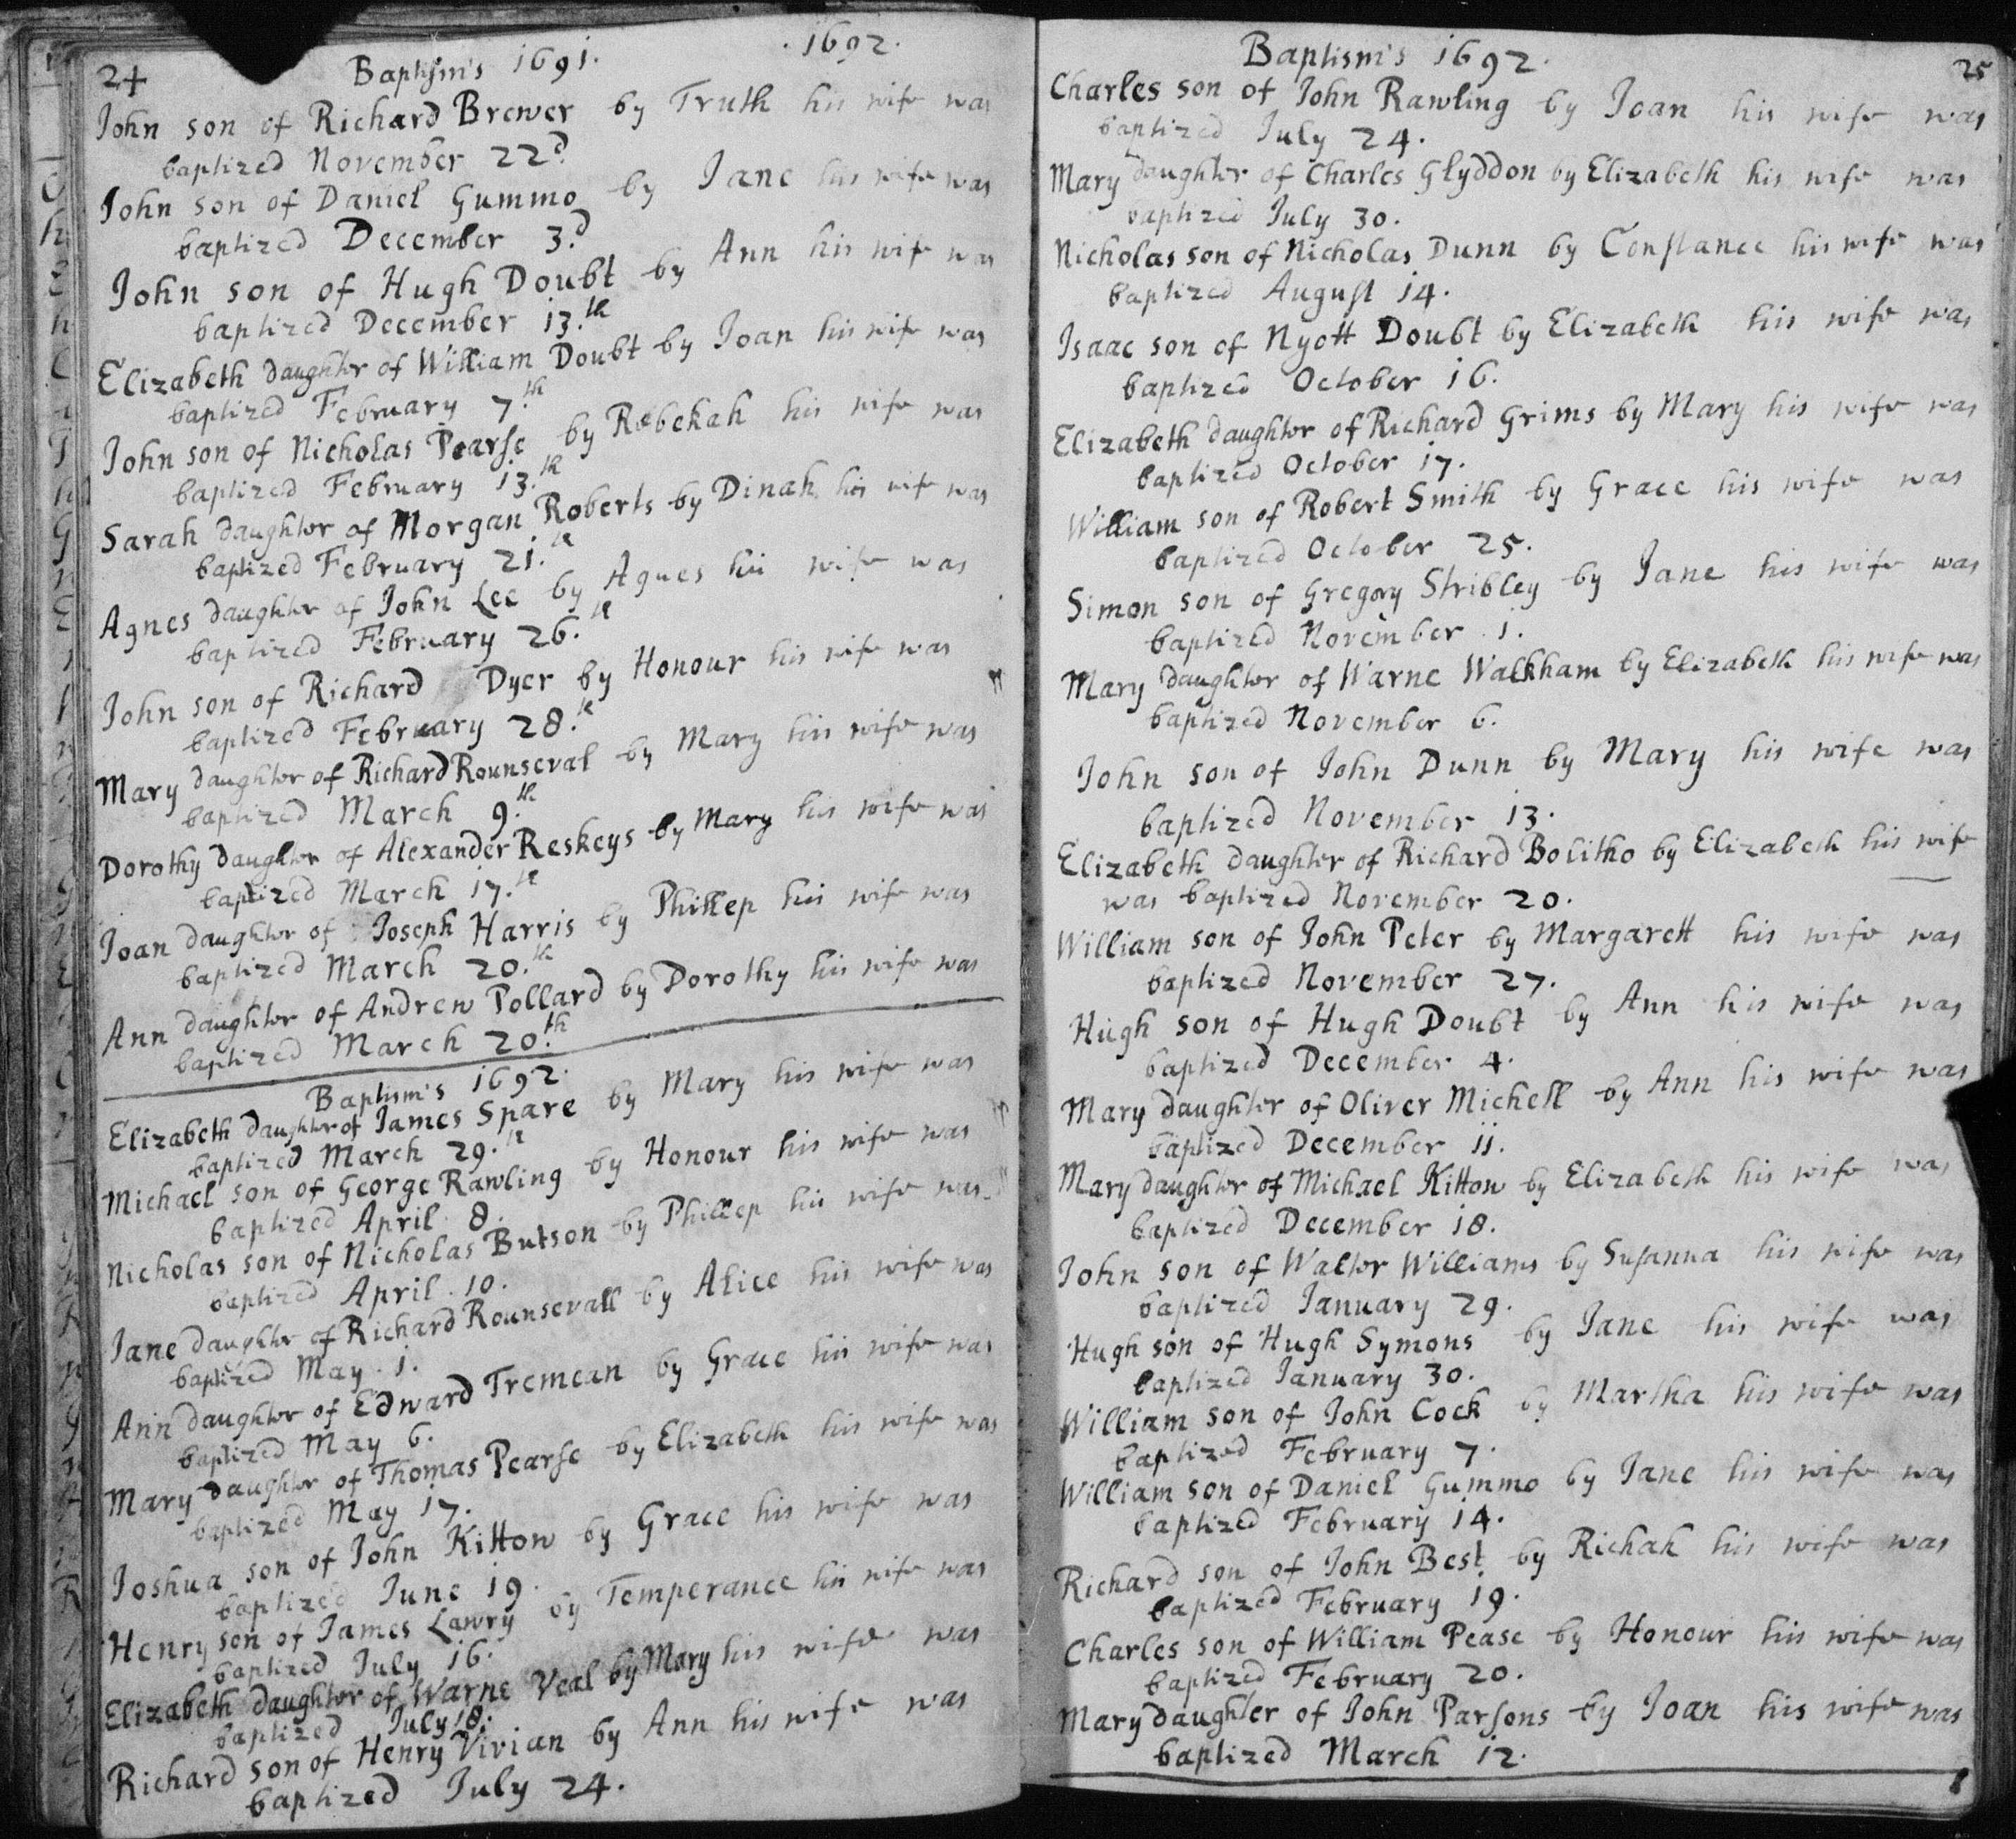 24 Baptism's 1691. . 1692.
John son of Richard Brewer by Truth his wife was
baptized November 22d.
John son of Daniel Gummo by Jane his wife was
baptized December 3.d
John son of Hugh Doubt by Ann his wife was
baptized December 13.th
Elizabeth daughter of William Doubt by Joan his wife was
baptized February 7.th
John son of Nicholas Pearse by Rebekah his wife was
baptized February 13.th
Sarah daughter of Morgan Roberts by Dinah his wife was
baptized February 21.th
Agnes daughter of John Lee by Agnes his wife was
baptized February 26.th
John son of Richard Dyer by Honour his wife was
baptized February 28.th
Mary daughter of Richard Rounseval by Mary his wife was
baptized March 9.th
Dorothy daughter of Alexander Reskeys by Mary his wife was
baptized March 17.th
Joan daughter of Joseph Harris by Phillep his wife was
baptized March 20.th
Ann daughter of Andrew Pollard by Dorothy his wife was
baptized March 20.th
Baptism's 1692.
Elizabeth daughter of James Spare by Mary his wife was
baptized March 29.th
Michael son of George Rawling by Honour his wife was
baptized April 8.
Nicholas son of Nicholas Butson by Phillep his wife was
baptized April 10.
Jane daughter of Richard Rounsevall by Alice his wife was
baptized May 1.
Ann daughter of Edward Tremean by Grace his wife was
baptized May 6.
Mary daughter of Thomas Pearse by Elizabeth his wife was
baptized May 17.
Joshua son of John Kittow by Grace his wife was
baptized June 19.
Henry son of James Lawry by Temperance his wife was
baptized July 16.
Elizabeth daughter of Warne Veal by Mary his wife was
baptized July 18.
Richard son of Henry Vivian by Ann his wife was
baptized July 24.
Baptism's 1692. 25
Charles son of John Rawling by Joan his wife was
baptized July 24.
Mary daughter of Charles Glyddon by Elizabeth his wife was
baptized July 30.
Nicholas son of Nicholas Dunn by Constance his wife was
baptized August 14.
Isaac son of Nyott Doubt by Elizabeth his wife was
baptized October 16.
Elizabeth daughter of Richard Grims by Mary his wife was
baptized October 17.
William son of Robert Smith by Grace his wife was
baptized October 25.
Simon son of Gregory Stribley by Jane his wife was
baptized November 1.
Mary daughter of Warne Walkham by Elizabeth his wife was
baptized November 6.
John son of John Dunn by Mary his wife was
baptized November 13.
Elizabeth daughter of Richard Bolitho by Elizabeth his wife
was baptized November 20.
William son of John Peter by Margarett his wife was
baptized November 27.
Hugh son of Hugh Doubt by Ann his wife was
baptized December 4.
Mary daughter of Oliver Michell by Ann his wife was
baptized December 11.
Mary daughter of Michael Kittow by Elizabeth his wife was
baptized December 18.
John son of Walter Williams by Susanna his wife was
baptized January 29.
Hugh son of Hugh Symons by Jane his wife was
baptized January 30.
William son of John Cock by Martha his wife was
baptized February 7.
William son of Daniel Gummo by Jane his wife was
baptized February 14.
Richard son of John Best by Richah his wife was
baptized February 19.
Charles son of William Pease by Honour his wife was
baptized February 20.
Mary daughter of John Parsons by Joan his wife was
baptized March 12.